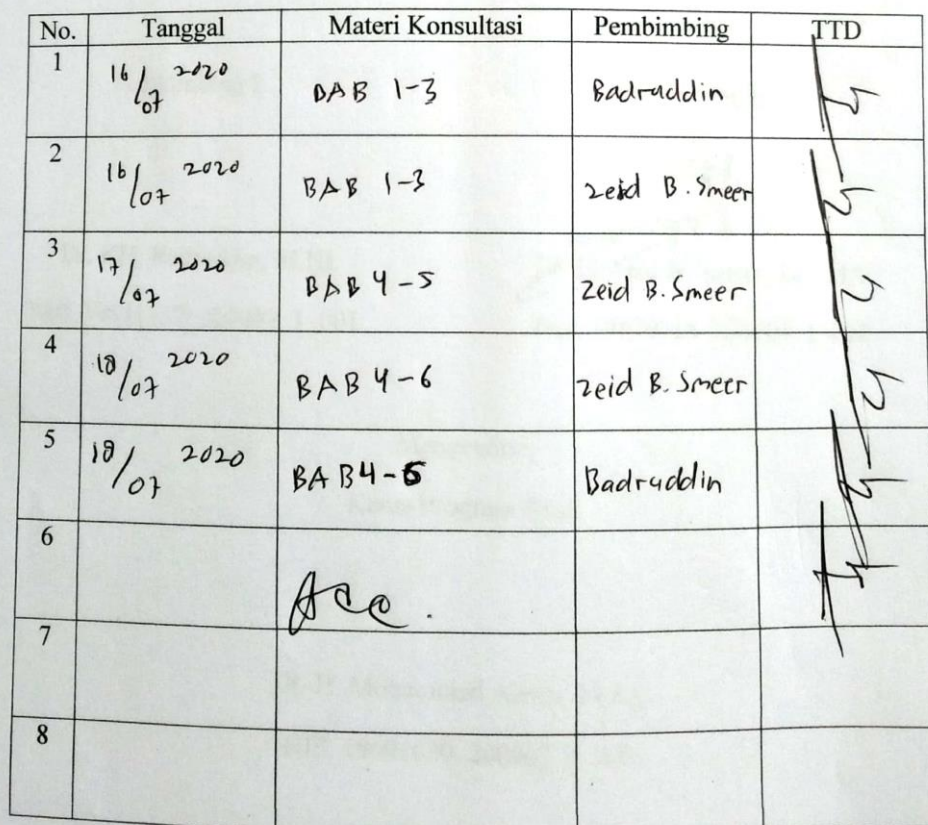 No. Tanggal Materi Konsultasi Pembimbing TTD
1 16/07 2020 BAB 1-3 Badruddin
2 16/07 2020 BAB 1-3 Zeid B. Smeer
3 17/07 2020 BAB 4-5 Zeid B. Smeer
4 18/07 2020 BAB 4-6 Zeid B. Smeer
5 18/07 2020 BAB 4-6 Badruddin
6 Acc.
7
8